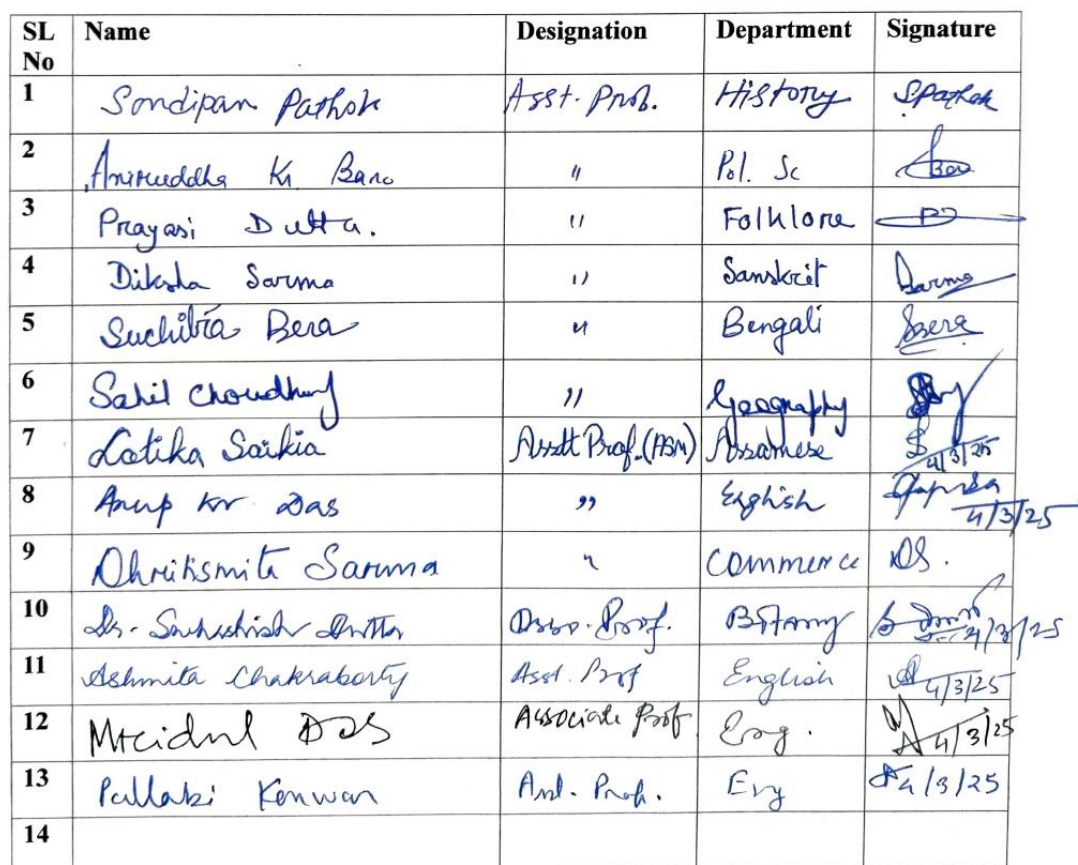 SL No Name Designation Department Signature
1 Sondipan Pathok Asst. Prof. History S.Pathok
2 Aniruddha Kr Baro " Pol. Sc
3 Prayasi Dutta. " Folklore
4 Diksha Sarma " Sanskrit Sarma
5 Suchitra Bera " Bengali SBera
6 Sahil Choudhury " Geography
7 Latika Saikia Asstt Prof.(ASM) Assamese 4/3/25
8 Anup Kr Das " English 4/3/25
9 Dhritismita Sarma " Commerce DS.
10 Dr. Dutta Asso. Prof. Botany 4/3/25
11 Ashmita Chakraborty Asst. Prof English 4/3/25
12 Mridul Das Associate Prof Eng. 4/3/25
13 Pallabi Konwar Asst. Prof. Eng 4/3/25
14